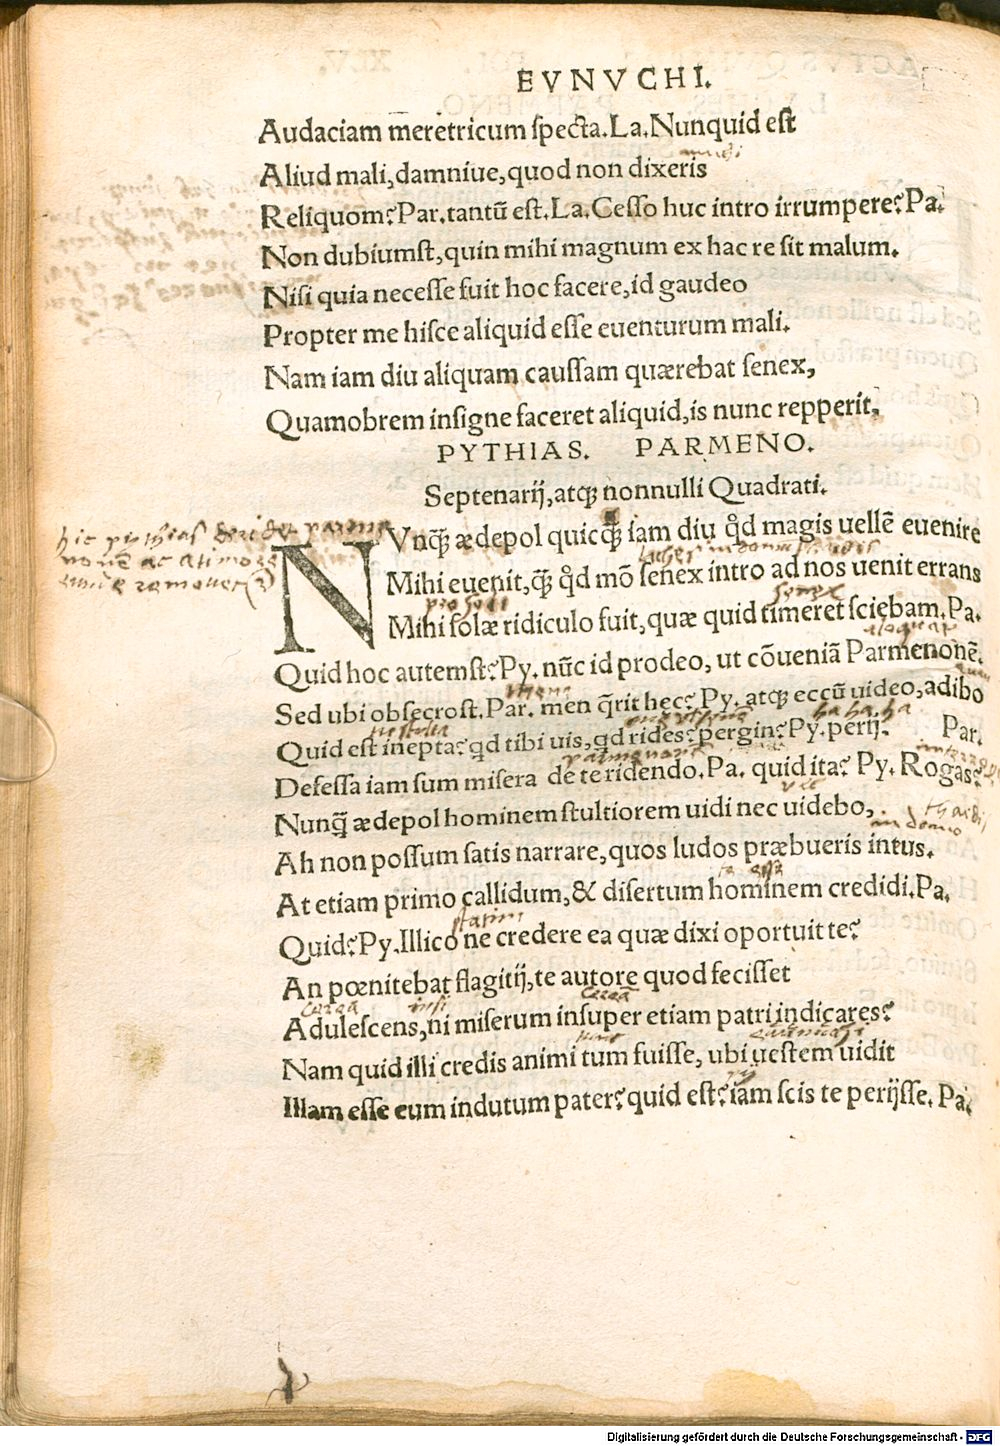 EVNVCHI.
Audaciam meretricum specta. La. Nunquid est
Aliud mali, damniue, quod non dixeris
Reliquom? Par. tantū est. La. Cesso huc intro irrumpere? Pa.
Non dubiumst, quin mihi magnum ex hac re sit malum.
Nisi quia necesse fuit hoc facere, id gaudeo
Propter me hisce aliquid esse euenturum mali.
Nam iam diu aliquam caussam quærebat senex,
Quamobrem insigne faceret aliquid, is nunc repperit.
PYTHIAS. PARMENO.
Septenarij, atqꝫ nonnulli Quadrati.
hic pithias deridet
NVnqꝫ̃ ædepol quicqꝫ̃ iam diu q̊d magis uellē euenire
Mihi euenit, qꝫ̃ q̊d mō senex intro ad nos uenit errans
senex
Mihi solæ ridiculo fuit, quæ quid timeret sciebam. Pa.
Quid hoc autemst? Py. nūc id prodeo, ut cōueniā Parmenonē.
Sed ubi obsecrost. Par. men q̄rit hec? Py. atqꝫ eccū uideo, adibo
ha ha ha
Quid est inepta? qd tibi uis, qd rides? pergin? Py. perij. Par.
Defessa iam sum misera de te ridendo. Pa. quid ita? Py. Rogas?
Nunqꝫ̃ ædepol hominem stultiorem uidi nec uidebo,
in domo
Ah non possum satis narrare, quos ludos præbueris intus.
At etiam primo callidum, & disertum hominem credidi. Pa.
statim
Quid? Py. Illico ne credere ea quæ dixi oportuit te?
An pœnitebat flagitij, te autore quod fecisset
Adulescens, ni miserum insuper etiam patri indicares?
Nam quid illi credis animi tum fuisse, ubi uestem uidit
Illam esse eum indutum pater? quid est? iam scis te perijsse. Pa.
Digitalisierung gefördert durch die Deutsche Forschungsgemeinschaft - DFG